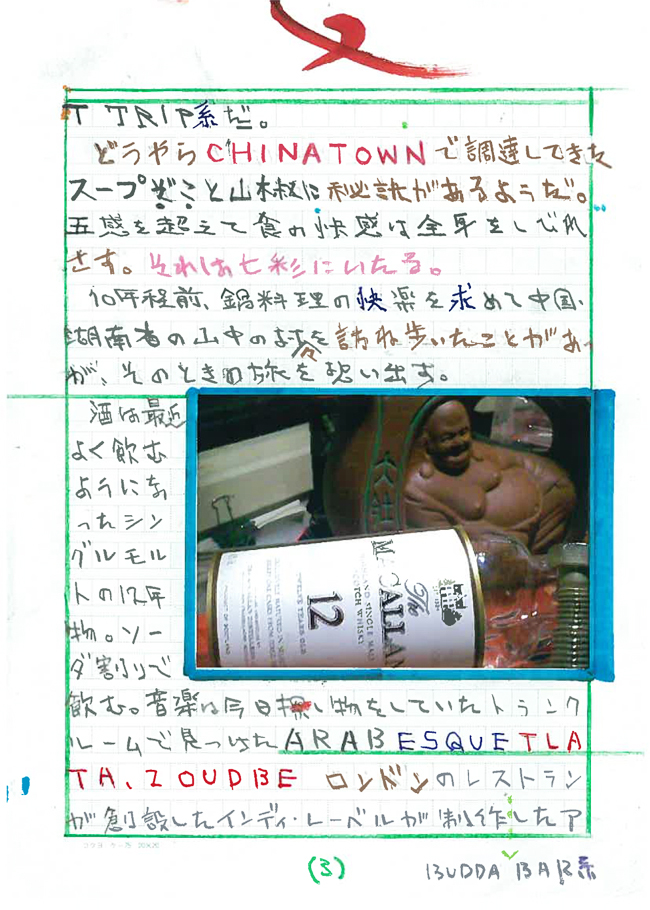 T TRIP系だ。
どうやらCHINATOWNで調達してきた
スープぞこと山椒に秘訣があるようだ。
五感を超えて食の快感は全身をしびれ
さす。それは七彩にいたる。
10年程前、鍋料理の快楽を求めて中国、
湖南省の山中の村々を訪ね歩いたことがあっ
が、そのときの旅を思い出す。
酒は最近
よく飲む
ようにな
ったシン
グルモル
トの12年
物。ソー
ダ割りで
The
MACALLAN
HIGHLAND SINGLE MALT
SCOTCH WHISKY
12
TWELVE YEARS OLD
PRODUCT OF SCOTLAND
飲む。音楽は今日探し物をしていたトランク
ルームで見つけたARABESQUE TLA
TA, ZOUDBE ロンドンのレストラン
が創設したインディ・レーベルが制作したア
コクヨ ケ-75 20×20
(3)
BUDDA BAR系